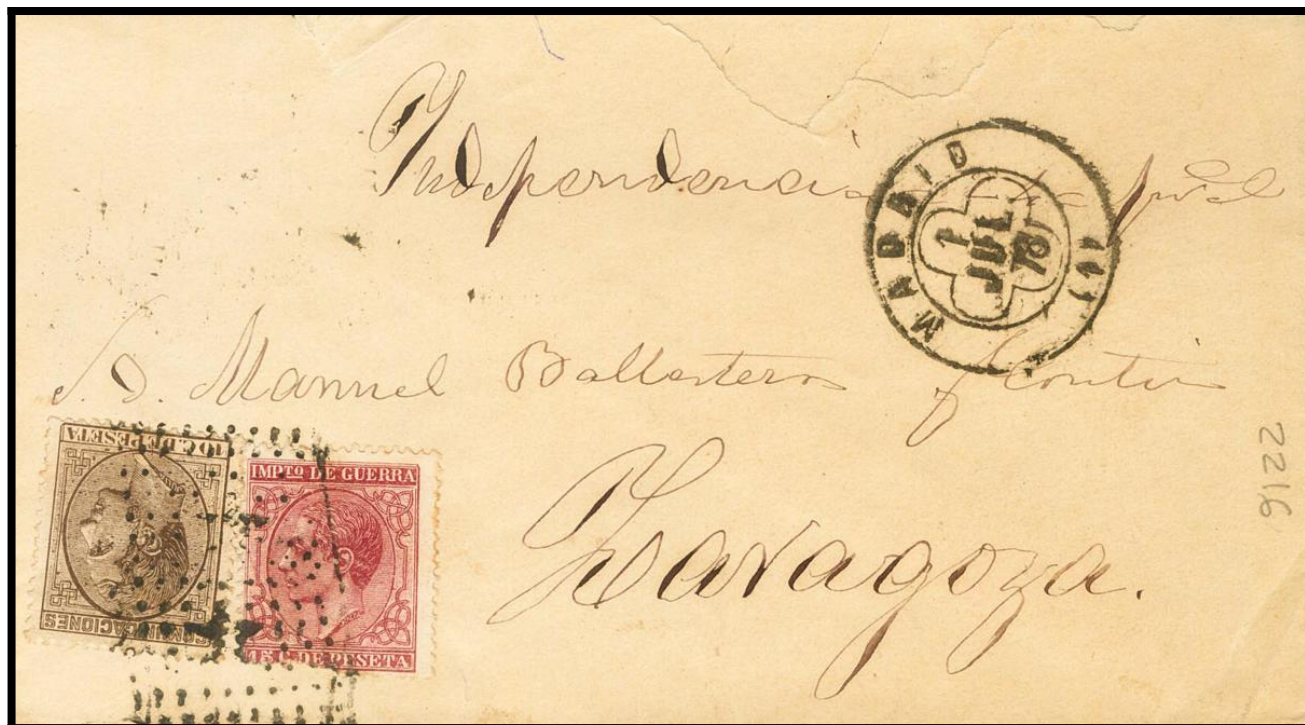 Independencia
MADRID
1
JUL
78
(1)
S. D. Manuel Ballesteros y
Zaragoza.
10 C. DE PESETA
COMUNICACIONES
IMPTO DE GUERRA
15 C. DE PESETA
2216